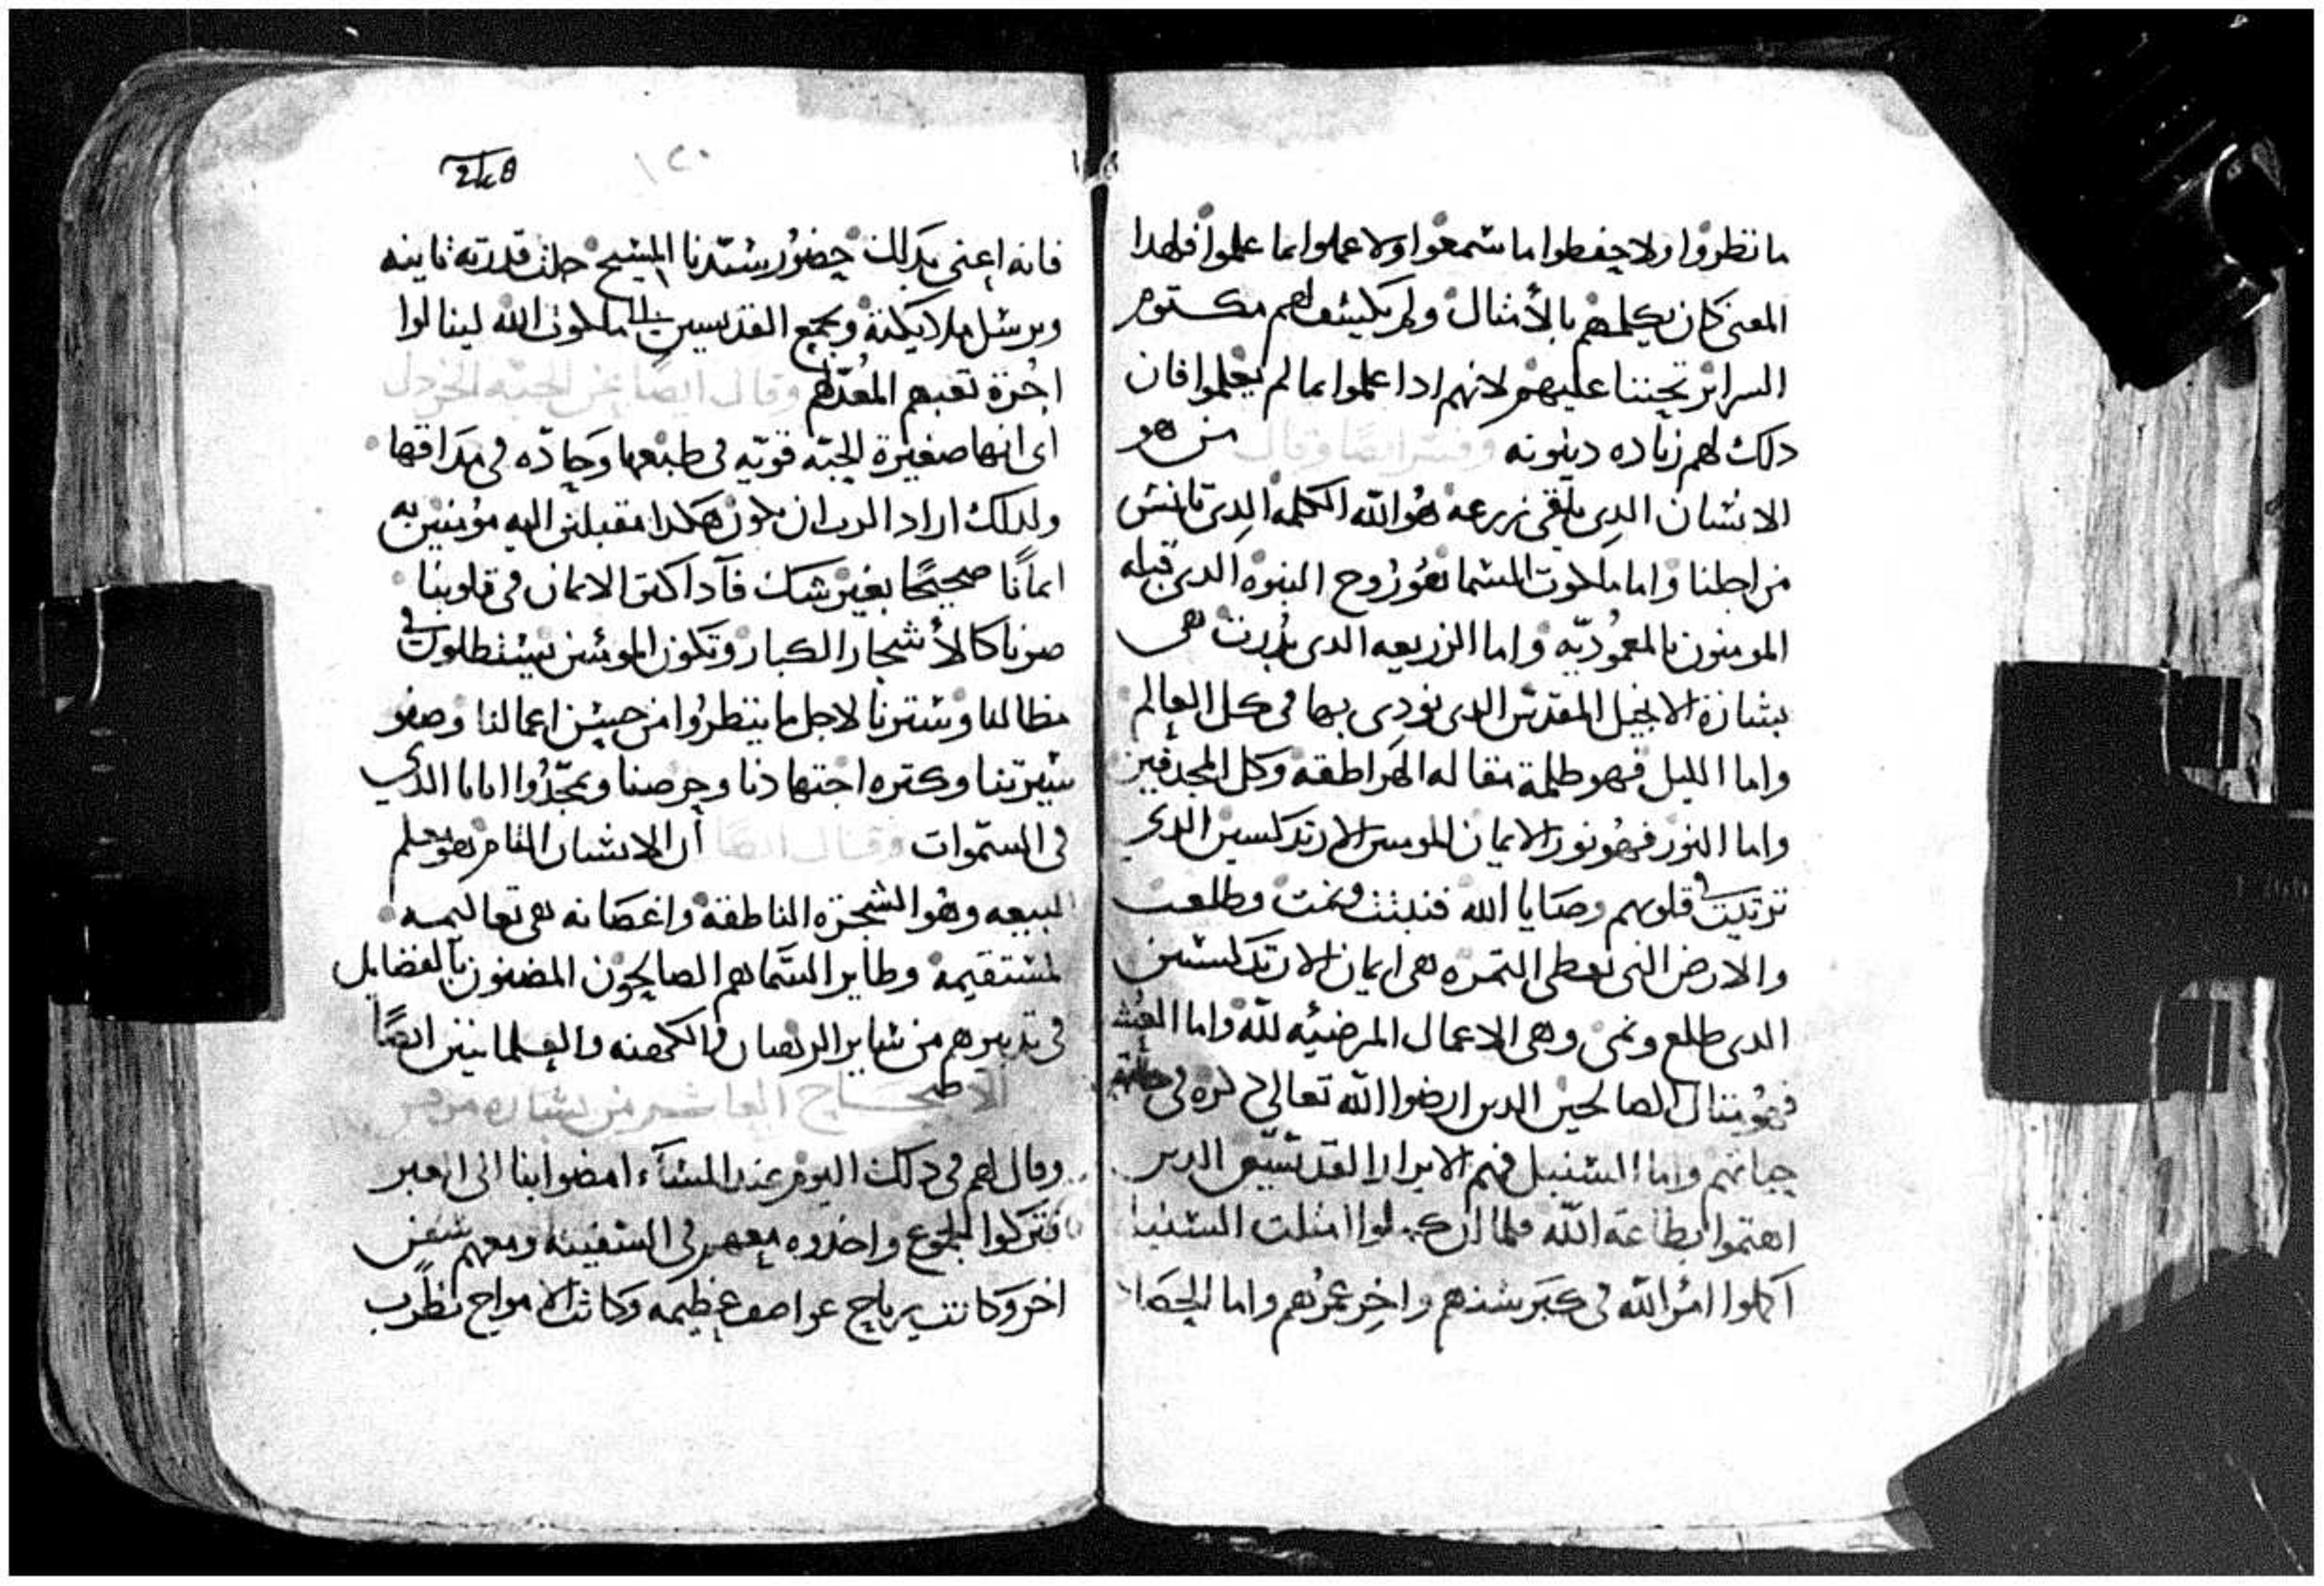 ما نظروا ولا حفظوا ما سمعوا ولا عملوا بما علموا فلهدا
المعنى كان يكلمهم بالأمثال ولم يكشف لهم مكتوم
السراير تحننا عليهم لانهم ادا عملوا بما لم يعلموا فان
دلك لهم زياده دينونه وفسر ايضا وقال من هو
الانسان الدى يلقى زرعه هو الله الكلمه الدى تانس
من اجلنا واما ملكوت السما فهو روح البنوه الدى قبله
المومنون بالمعموديه واما الزريعه الدى بدرت هى
بشارة الانجيل المقدس الدى نودى بها فى كل العالم
واما الليل فهو ظلمة مقاله الهراطقه وكل المجدفين
واما النور فهو نور الايمان المومنين الارتدكسين الدى
تربت فى قلوبهم وصايا الله فنبتت ونمت وطلعت
والارض التى تعطى التمره هى ايمان الارتدكسين
الدى طلع ونمى وهى الاعمال المرضيه لله واما العشب
فهو مثال الصالحين الدين ارضوا الله تعالى دكره فى
حياتهم واما السنبل فهم الابرار القديسين الدين
اهتموا بطاعة الله فلما ان كملوا امتلت السنبل
اكملوا امر الله فى كبر سنهم واخر عمرهم واما الحصاد
248
١٢٠
فانه اعنى بدلك حضور سيدنا المسيح جلت قدرته ثانيه
ويرسل ملايكته ويجمع القديسين الى ملكوت الله لينالوا
اجرة تعبهم المعد لهم وقال ايضا عن الحبه الخردل
اى انها صغيرة الحبه قويه فى طبعها وحاده فى مداقها
ولدلك اراد الرب ان نكون هكدا مقبلين اليه مومنين به
ايمانا صحيحا بغير شك فادا كتر الايمان فى قلوبنا
صرنا كالأشجار الكبار وتكون المومنين يستظلون فى
مظالنا وسترنا لاجل ما ينتظروا من حسن اعمالنا وصفو
سيرتنا وكتره اجتهادنا وحرصنا ويمجدوا ابانا الدى
فى السموات وقال ايضا أن الانسان التام هو معلم
البيعه وهو الشجره الناطقه واغصانه هى تعاليمه
المستقيمه وطاير السما هم الصالحون المضيون بالفضايل
فى تدبيرهم من ساير الرهبان والكهنه والعلمانيين ايضا
الاصحاح العاشر من بشاره مرقس
وقال لهم فى دلك اليوم عند المساء امضوا بنا الى العبر
فتركوا الجموع واخدوه معهم فى السفينه ومعهم سفن
اخر وكانت رياح عواصف عظيمه وكانت الامواج تضرب